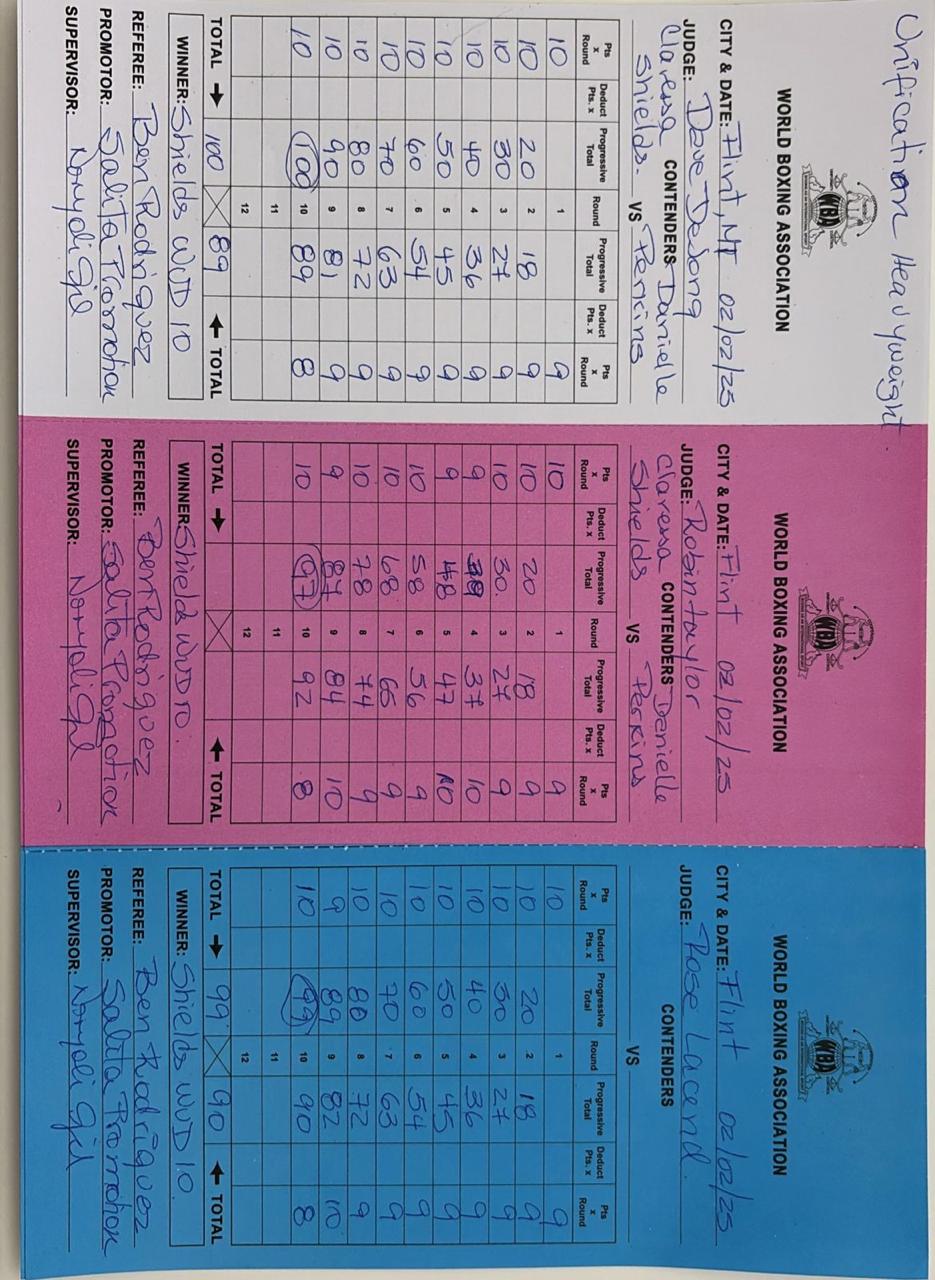 Unification Heavyweight
WBA
WORLD BOXING ASSOCIATION
CITY & DATE: Flint, MI 02/02/25
JUDGE: Dave Dedong
CONTENDERS
Claressa Danielle
Shields. VS Perkins
Pts x Round Deduct Pts. x Progressive Total Round Progressive Total Deduct Pts. x Pts x Round
10 1 9
10 20 2 18 9
10 30 3 27 9
10 40 4 36 9
10 50 5 45 9
10 60 6 54 9
10 70 7 63 9
10 80 8 72 9
10 90 9 81 9
10 100 10 89 8
11
12
TOTAL → 100 89 ← TOTAL
WINNER: Shields WUD 10
REFEREE: Ben Rodriguez
PROMOTOR: Salita Promotion
SUPERVISOR:
WBA
WORLD BOXING ASSOCIATION
CITY & DATE: Flint 02/02/25
JUDGE: Robin taylor
CONTENDERS
Claressa Danielle
Shields VS Perkins
Pts x Round Deduct Pts. x Progressive Total Round Progressive Total Deduct Pts. x Pts x Round
10 1 9
10 20 2 18 9
10 30. 3 27 9
9 39 4 37 10
9 48 5 47 10
10 58 6 56 9
10 68 7 65 9
10 78 8 74 9
9 87 9 84 10
10 97 10 92 8
11
12
TOTAL → ← TOTAL
WINNER: Shields WUD 10.
REFEREE: Ben Rodriguez
PROMOTOR: Salita Promotion
SUPERVISOR:
WBA
WORLD BOXING ASSOCIATION
CITY & DATE: Flint 02/02/25
JUDGE: Rose Lacend.
CONTENDERS
VS
Pts x Round Deduct Pts. x Progressive Total Round Progressive Total Deduct Pts. x Pts x Round
10 1 9
10 20 2 18 9
10 30 3 27 9
10 40 4 36 9
10 50 5 45 9
10 60 6 54 9
10 70 7 63 9
10 80 8 72 9
9 89 9 82 10
10 99 10 90 8
11
12
TOTAL → 99 90 ← TOTAL
WINNER: Shields WUD 10.
REFEREE: Ben Rodriguez
PROMOTOR: Salita Promotion
SUPERVISOR: